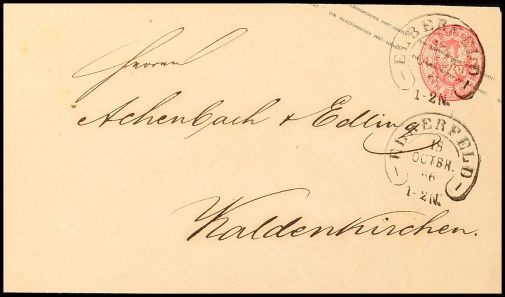 ELBERFELD
1-2N.
Herren
Achenbach & Edling
ELBERFELD
18
OCTBR.
66
1-2N.
Kaldenkirchen.